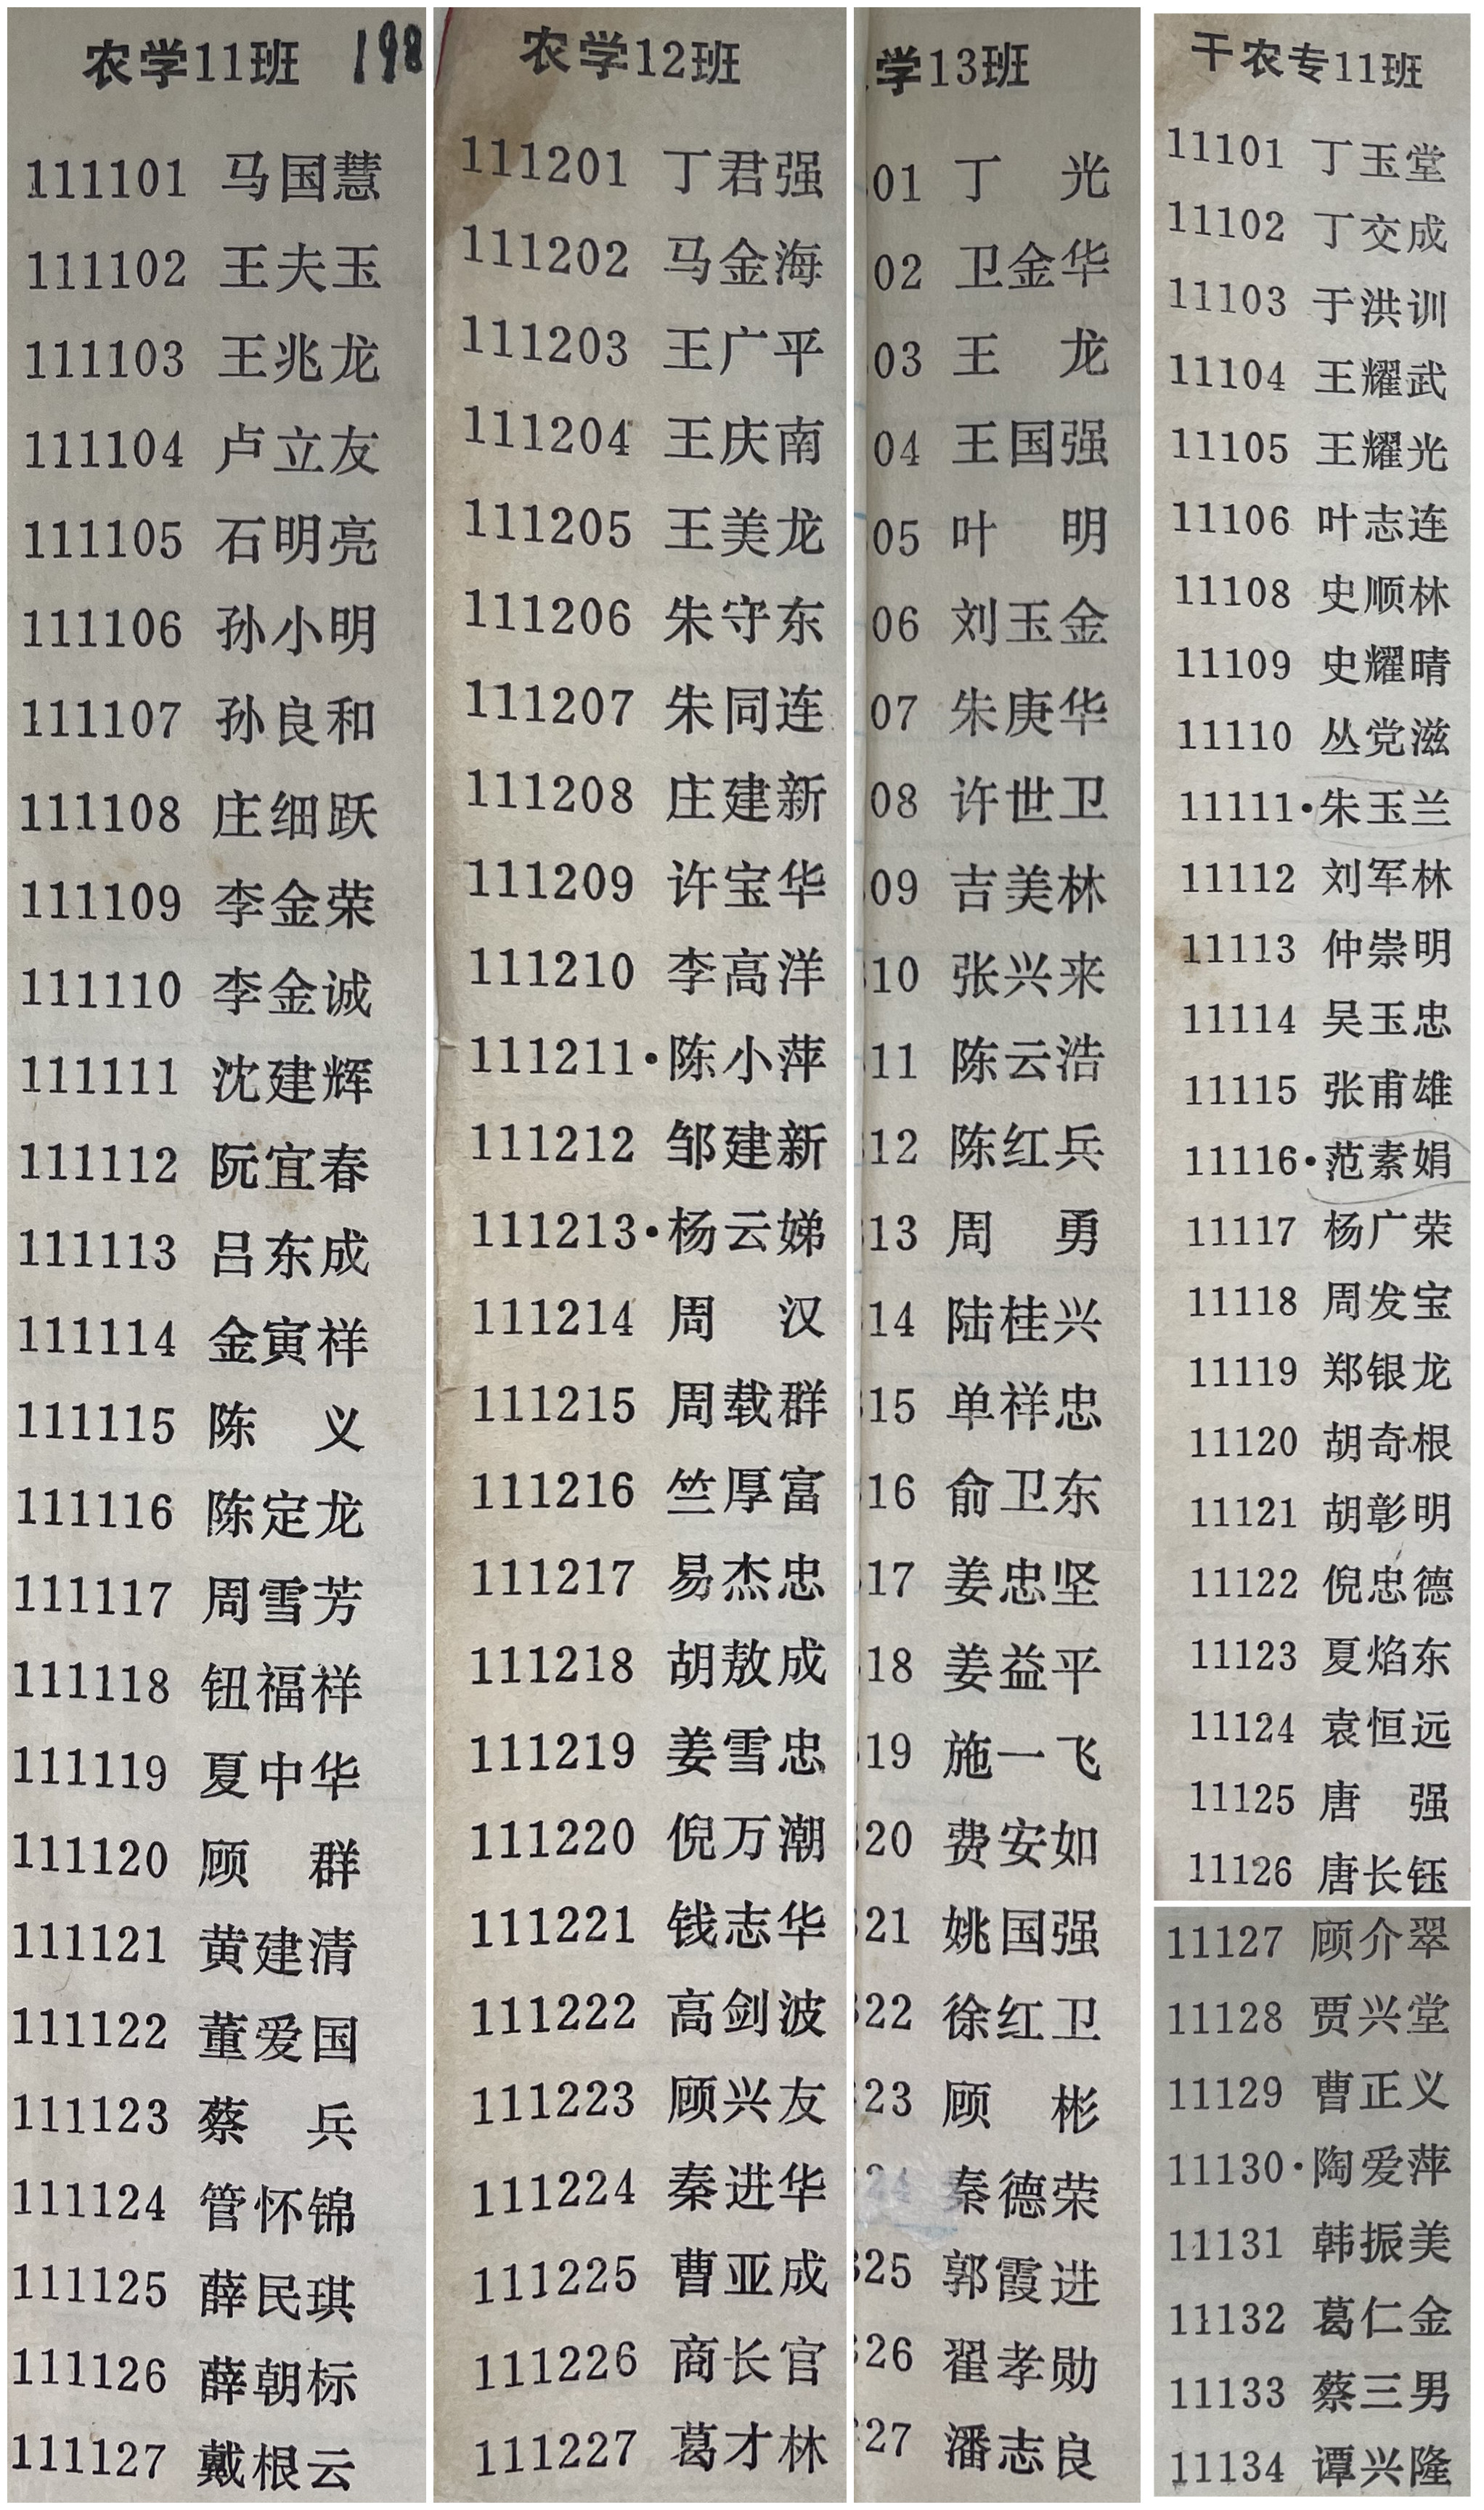 农学11班 198
111101 马国慧
111102 王夫玉
111103 王兆龙
111104 卢立友
111105 石明亮
111106 孙小明
111107 孙良和
111108 庄细跃
111109 李金荣
111110 李金诚
111111 沈建辉
111112 阮宜春
111113 吕东成
111114 金寅祥
111115 陈 义
111116 陈定龙
111117 周雪芳
111118 钮福祥
111119 夏中华
111120 顾 群
111121 黄建清
111122 董爱国
111123 蔡 兵
111124 管怀锦
111125 薛民琪
111126 薛朝标
111127 戴根云
农学12班
111201 丁君强
111202 马金海
111203 王广平
111204 王庆南
111205 王美龙
111206 朱守东
111207 朱同连
111208 庄建新
111209 许宝华
111210 李高洋
111211·陈小萍
111212 邹建新
111213·杨云娣
111214 周 汉
111215 周载群
111216 竺厚富
111217 易杰忠
111218 胡敖成
111219 姜雪忠
111220 倪万潮
111221 钱志华
111222 高剑波
111223 顾兴友
111224 秦进华
111225 曹亚成
111226 商长官
111227 葛才林
学13班
01 丁 光
02 卫金华
03 王 龙
04 王国强
05 叶 明
06 刘玉金
07 朱庚华
08 许世卫
09 吉美林
10 张兴来
11 陈云浩
12 陈红兵
13 周 勇
14 陆桂兴
15 单祥忠
16 俞卫东
17 姜忠坚
18 姜益平
19 施一飞
20 费安如
21 姚国强
322 徐红卫
23 顾 彬
24 秦德荣
325 郭霞进
326 翟孝勋
27 潘志良
干农专11班
11101 丁玉堂
11102 丁交成
11103 于洪训
11104 王耀武
11105 王耀光
11106 叶志连
11108 史顺林
11109 史耀晴
11110 丛党滋
11111·朱玉兰
11112 刘军林
11113 仲崇明
11114 吴玉忠
11115 张甫雄
11116·范素娟
11117 杨广荣
11118 周发宝
11119 郑银龙
11120 胡奇根
11121 胡彰明
11122 倪忠德
11123 夏焰东
11124 袁恒远
11125 唐 强
11126 唐长钰
11127 顾介翠
11128 贾兴堂
11129 曹正义
11130·陶爱萍
11131 韩振美
11132 葛仁金
11133 蔡三男
11134 谭兴隆